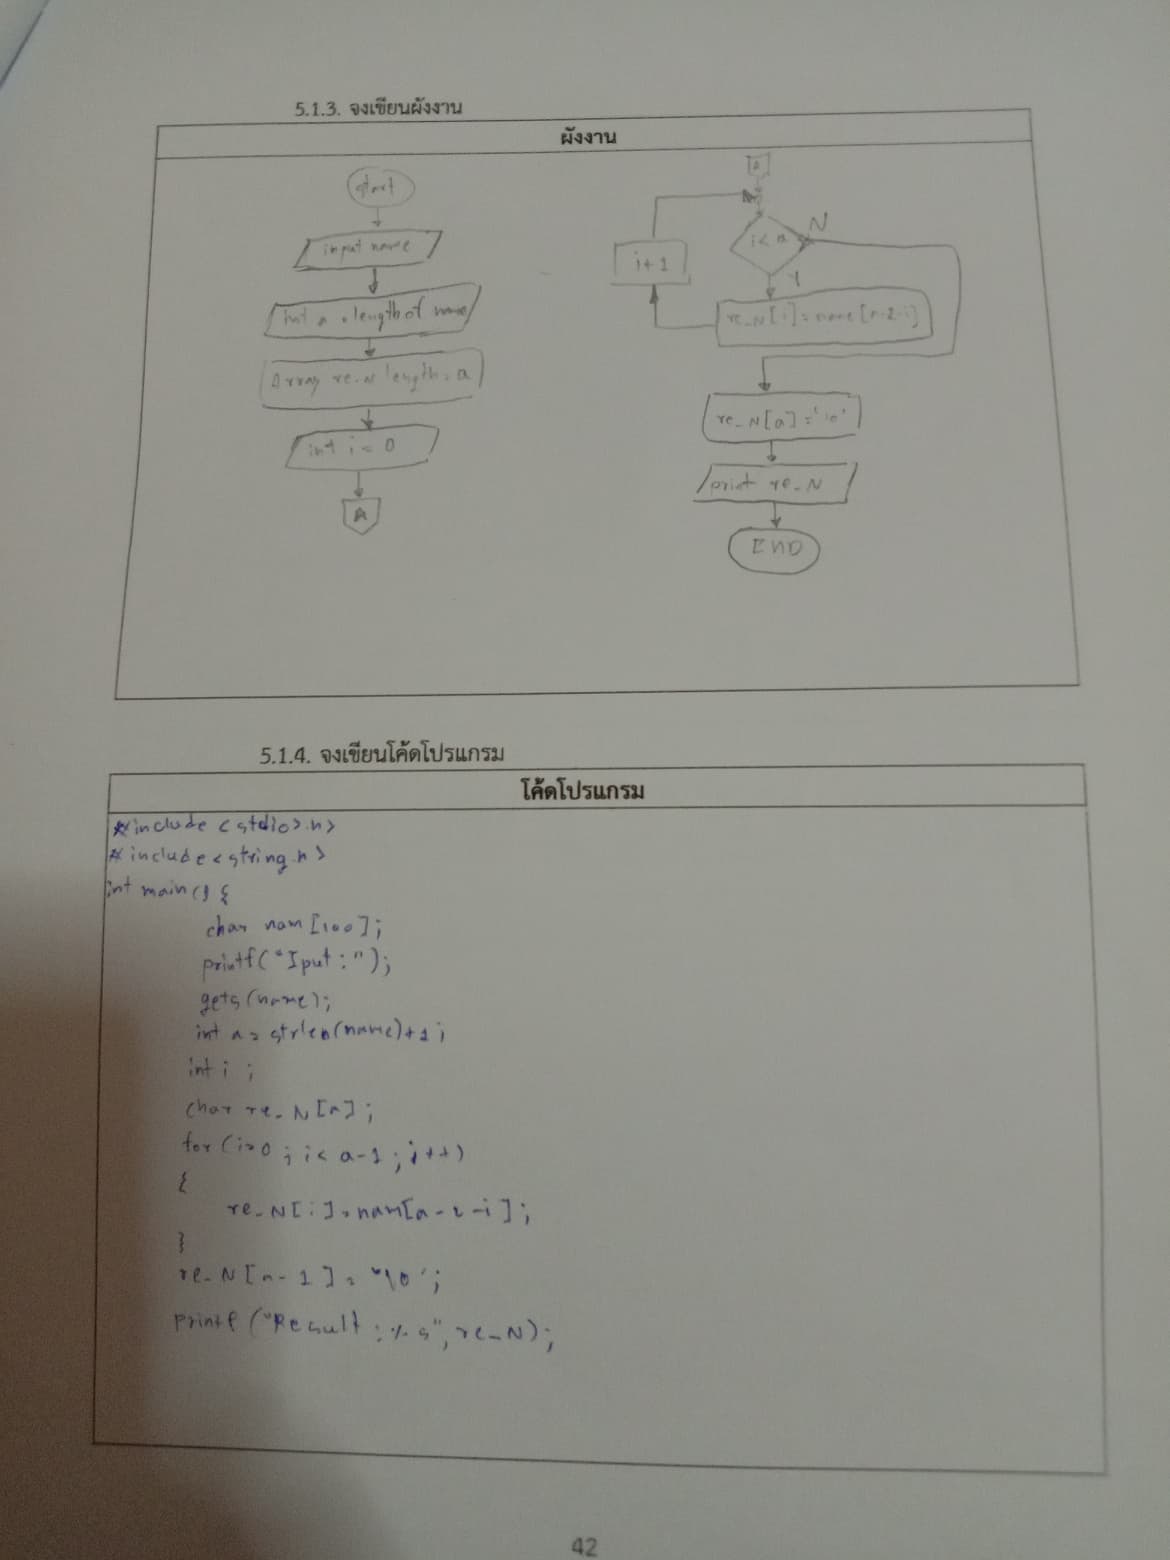 5.1.3. จงเขียนผังงาน
ผังงาน
start
input name
int a = length of name
Array re_N length = a
int i = 0
A
A
i < a
N
Y
i+1
re_N[i] = name[a-2-i]
re_N[a] = '\0'
print re_N
END
5.1.4. จงเขียนโค้ดโปรแกรม
โค้ดโปรแกรม
#include <stdio>.h>
#include <string.h>
int main() {
char nam [100];
printf("Iput :");
gets (name);
int a = strlen(name)+1;
int i ;
char re_N [a];
for (i=0 ; i< a-1 ; i++)
{
re_N[i] = nam[a-2-i];
}
re_N [a-1] = '\0';
printf ("Result : %s", re_N);
42